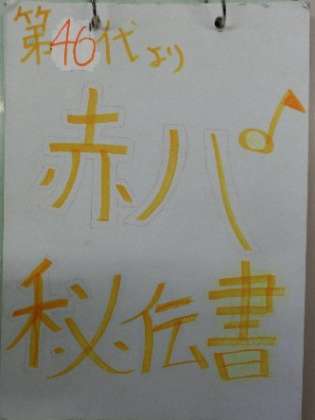 第46代より
赤パ
秘伝書